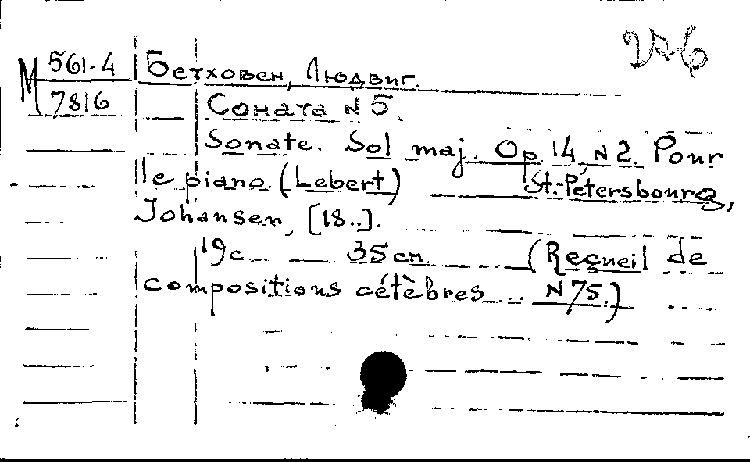 М 561-4
7816
Бетховен, Людвиг.
Соната N 5.
Sonate. Sol maj. Op. 14, N 2. Pour
le piano (Lebert) St.-Pétersbourg,
Johansen, [18..].
19 с. 35 cm (Reçueil de
compositions cétèbres ... N 75.)